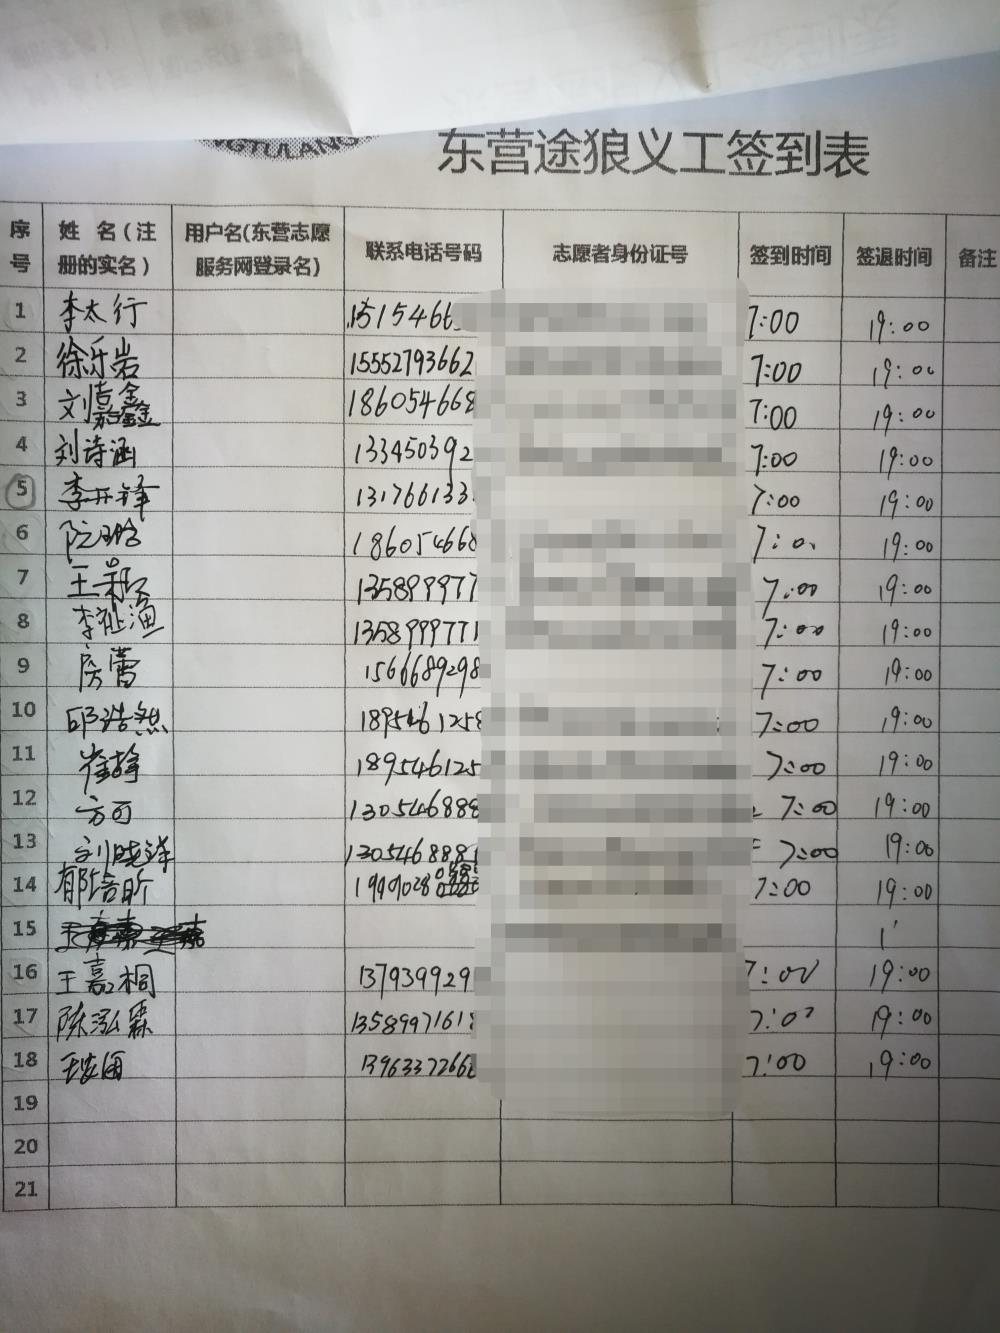 GTULANG
东营途狼义工签到表
序号 姓 名(注册的实名) 用户名(东营志愿服务网登录名) 联系电话号码 志愿者身份证号 签到时间 签退时间 备注
1 李太行 15154663 7:00 19:00
2 徐乐岩 15552793662 7:00 19:00
3 刘嘉鑫 186054668 7:00 19:00
4 刘诗涵 133450392 7:00 19:00
5 李开锋 131766133 7:00 19:00
6 186054668 7:00 19:00
7 135899977 7:00 19:00
8 李祉渔 1358999771 7:00 19:00
9 房蕾 1566689298 7:00 19:00
10 邱浩然 1895461258 7:00 19:00
11 崔静 189546125 7:00 19:00
12 方可 130546888 7:00 19:00
13 刘晓洋 1305468881 7:00 19:00
14 郁培昕 7:00 19:00
15
16 王嘉桐 137939929 7:00 19:00
17 陈泓霖 13589971618 7:00 19:00
18 1396337266 7:00 19:00
19
20
21